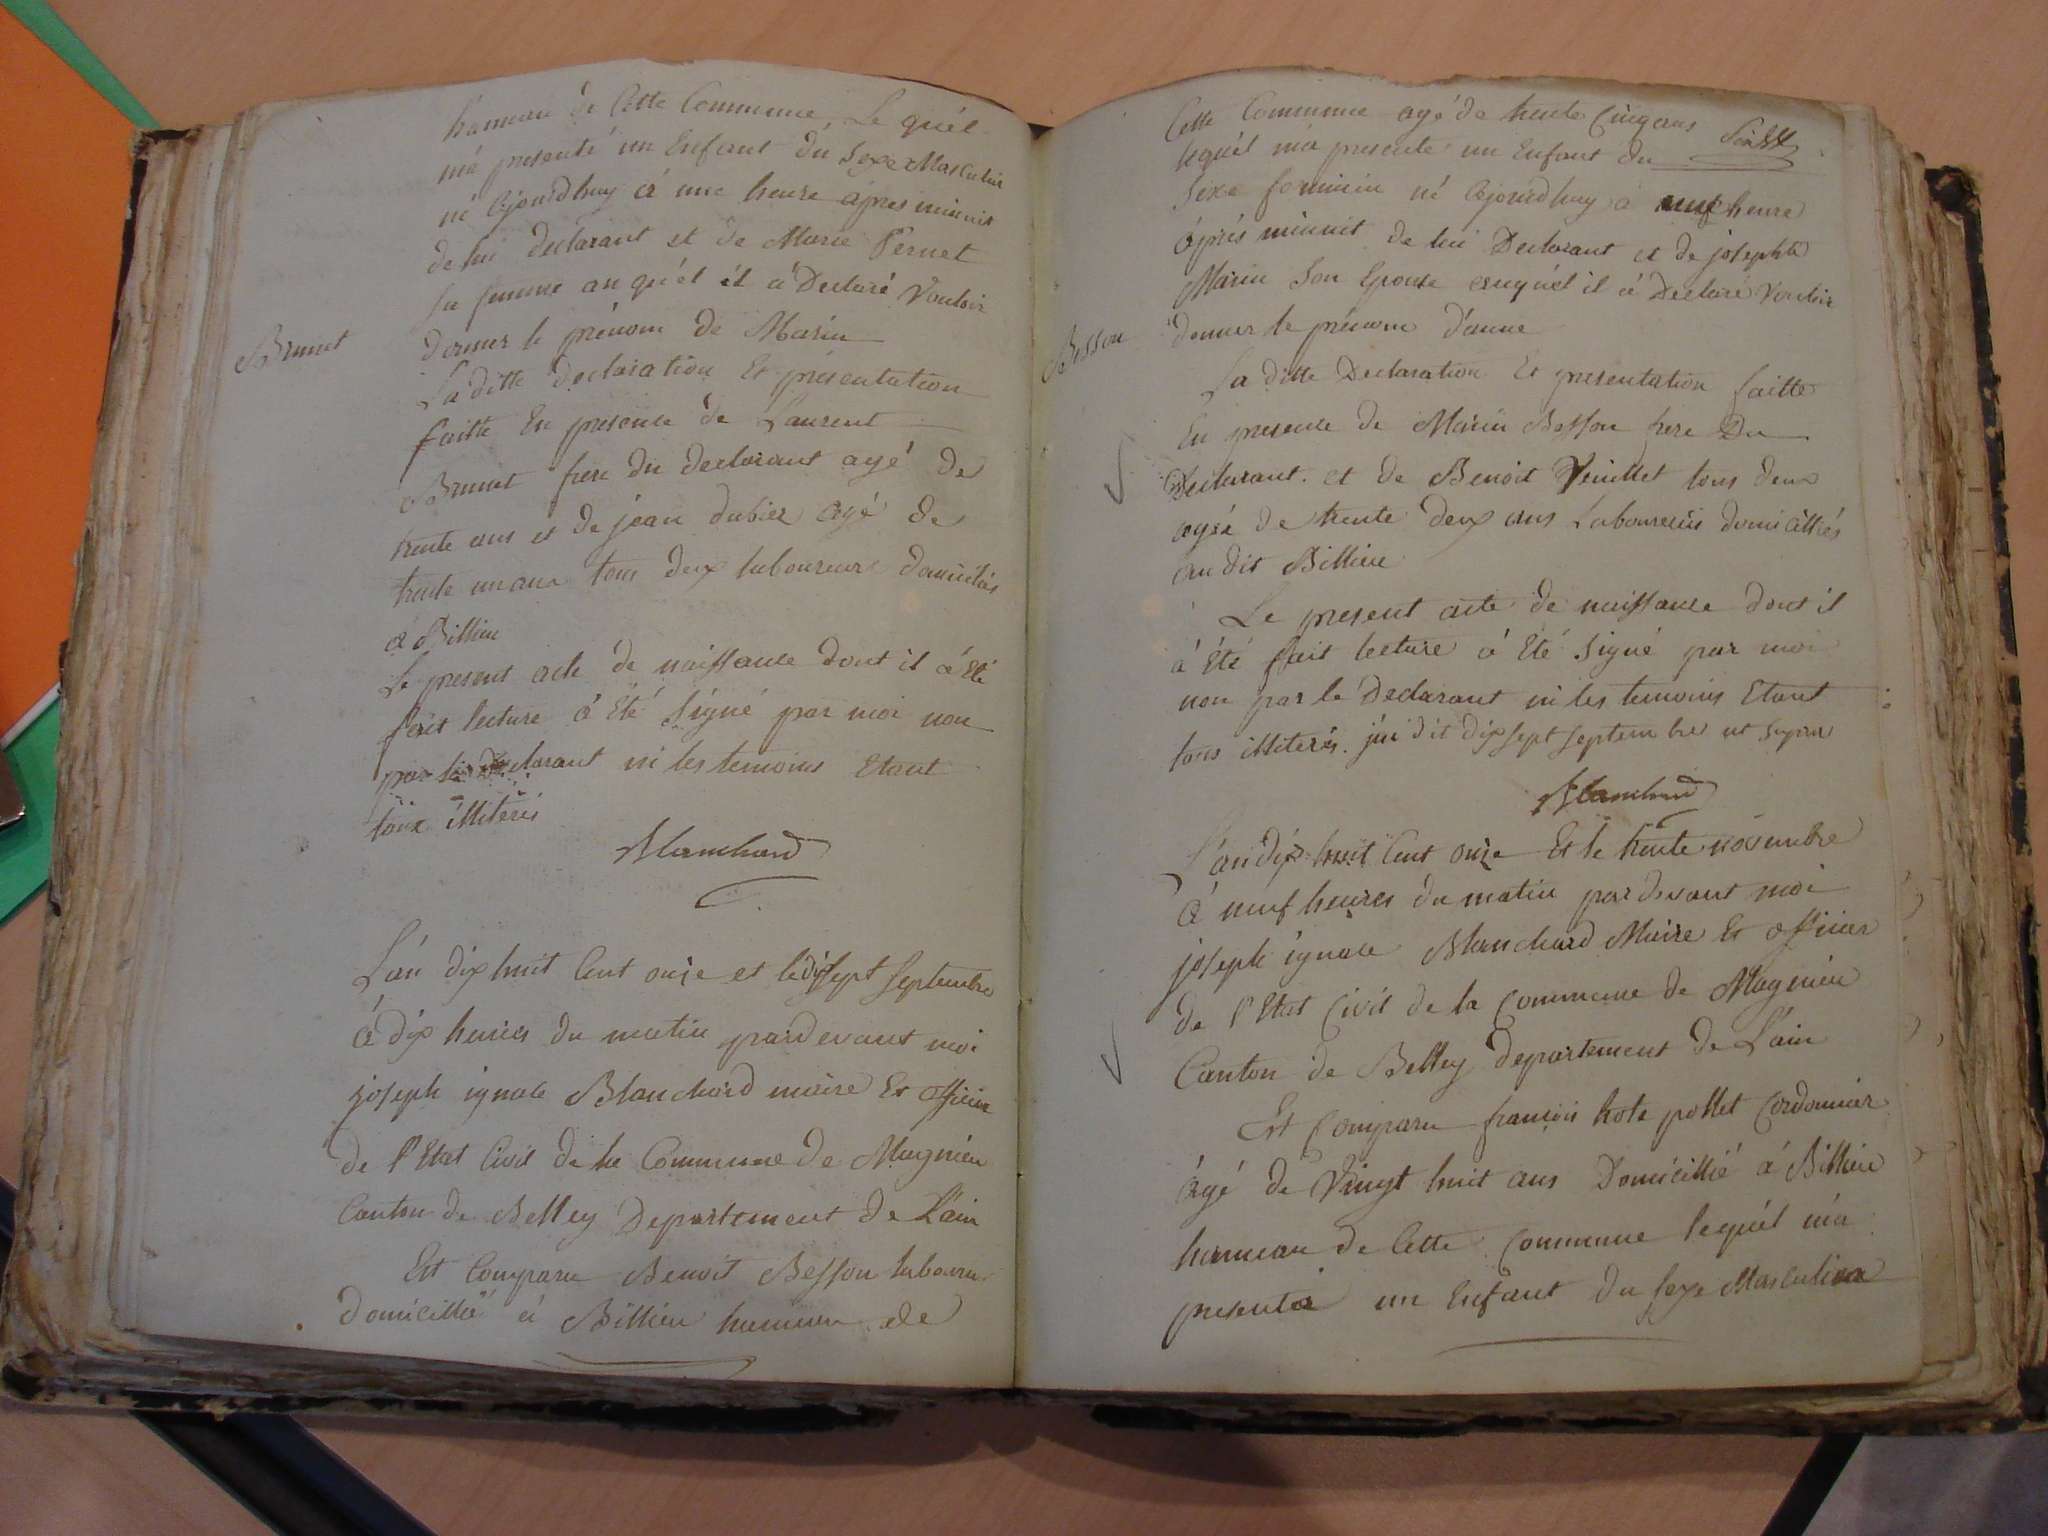 hameau de Cette Commune Le quél
má presenté un Enfant du Sexe Masculin
né Ajourdhuy á une heure áprés minuit
de lui declarant et de Marie Pernet
sa femme au quél il á Declaré Vouloir
Brunet
donner le prénom de Marin
La ditte declaration Et présentation
faitte En presence de Laurent
Brunet frere du declarant agé de
trente ans et de jean dubiez agé de
trente un ans tous deux laboureurs domiciliés
á Billieu
Le present acte de naissance dont il á Eté
fait lecture á Eté Signé par moi non
par le declarant ni les temoins Etant
tous illiterés
Blanchard
L'án dix huit Cent onze et le dix sept septembre
á dix heures du matin pardevant moi
joseph ignace Blanchard maire Et officier
de l'Etat Civil de la Commune de Magnieu
Canton de Belley Departement de L'ain
Est Comparu Benoit Besson laboureur
domicillié á Billieu hameau de
Cette Commune agé de trente Cinq ans
lequél má presenté un Enfant du
Sexe feminin né Ajourdhuy á neuf heure
áprés minuit de lui Declarant et de josephte
Marin Son Epouse auquél il á Declaré Vouloir
Besson
donner le prénom d'anne
La ditte Declaration Et presentation faitte
En presence de Marin Besson frere Du
Declarant et de Benoit Veuillet tous deux
agés de trente deux ans Laboureurs domicilliés
au dit Billieu
Le present acte de naissance dont il
á été fait lecture á Eté Signé par moi
non par le Declarant ni les temoins Etant
tous illiterés. jai dit dix sept septembre ut supra
Blanchard
L'an dix huit Cent onze Et le trente novembre
á neuf heures du matin pardevant moi
joseph ignace Blanchard Maire Et officier
de l'Etat Civil de la Commune de Magnieu
Canton de Belley Departement de L'ain
Est Comparu françois hote pollet Cordonnier
ágé de Vingt huit ans Domicillié á Billieu
hameau de Cette Commune lequél má
presenté un Enfant du sexe Masculin